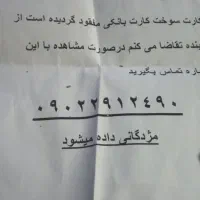 کارت سوخت کارت بانکی مفقود گردیده است از
بنده تقاضا می کنم درصورت مشاهده با این
تماس بگیرید
۰۹۰۲۲۹۱۲۴۹۰
مژدگانی داده میشود